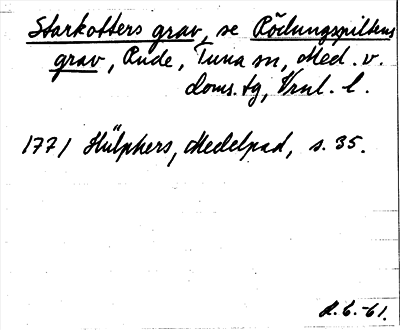 Starkotters grav, se Rödungspiltens
grav, Rude, Tuna sn, Med. v.
doms. tg, Vrnl. l.
1771 Hülphers, Medelpad, s. 35.
R. G. -61.